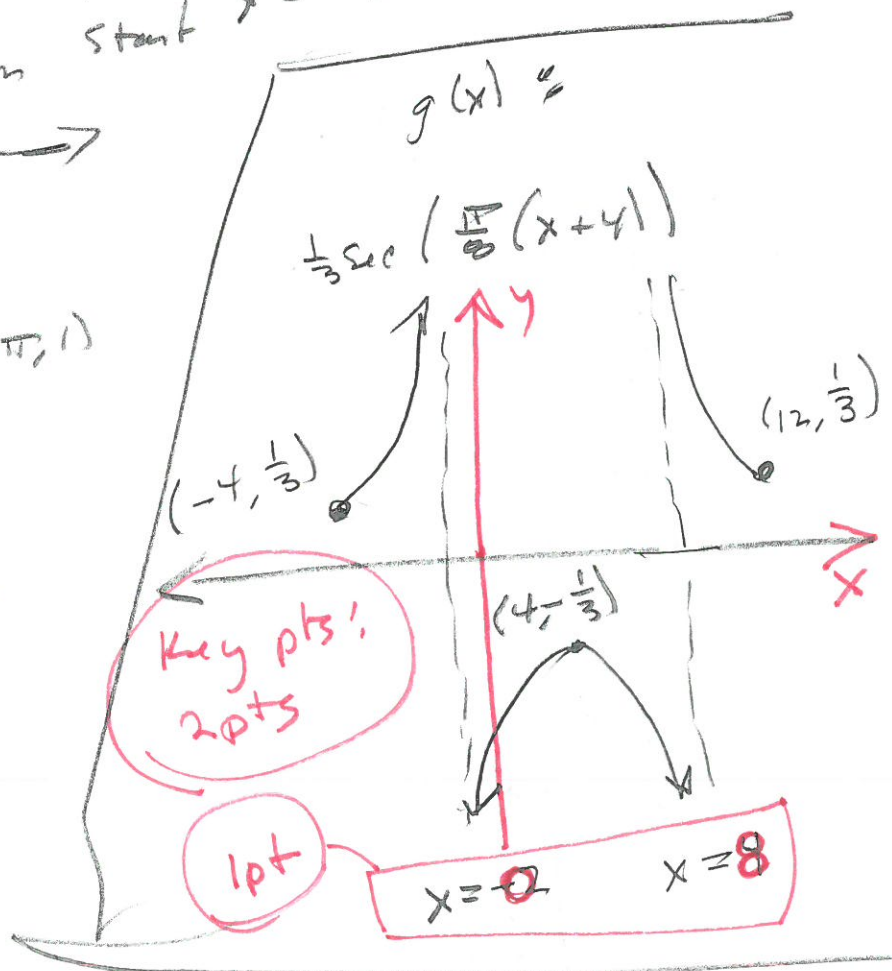 start
g(x) =
1/3 sec (π/8 (x+4))
y
π, 1)
(12, 1/3)
(-4, 1/3)
x
(4, -1/3)
Key pts:
2pts
1pt
x = 0
x = 8